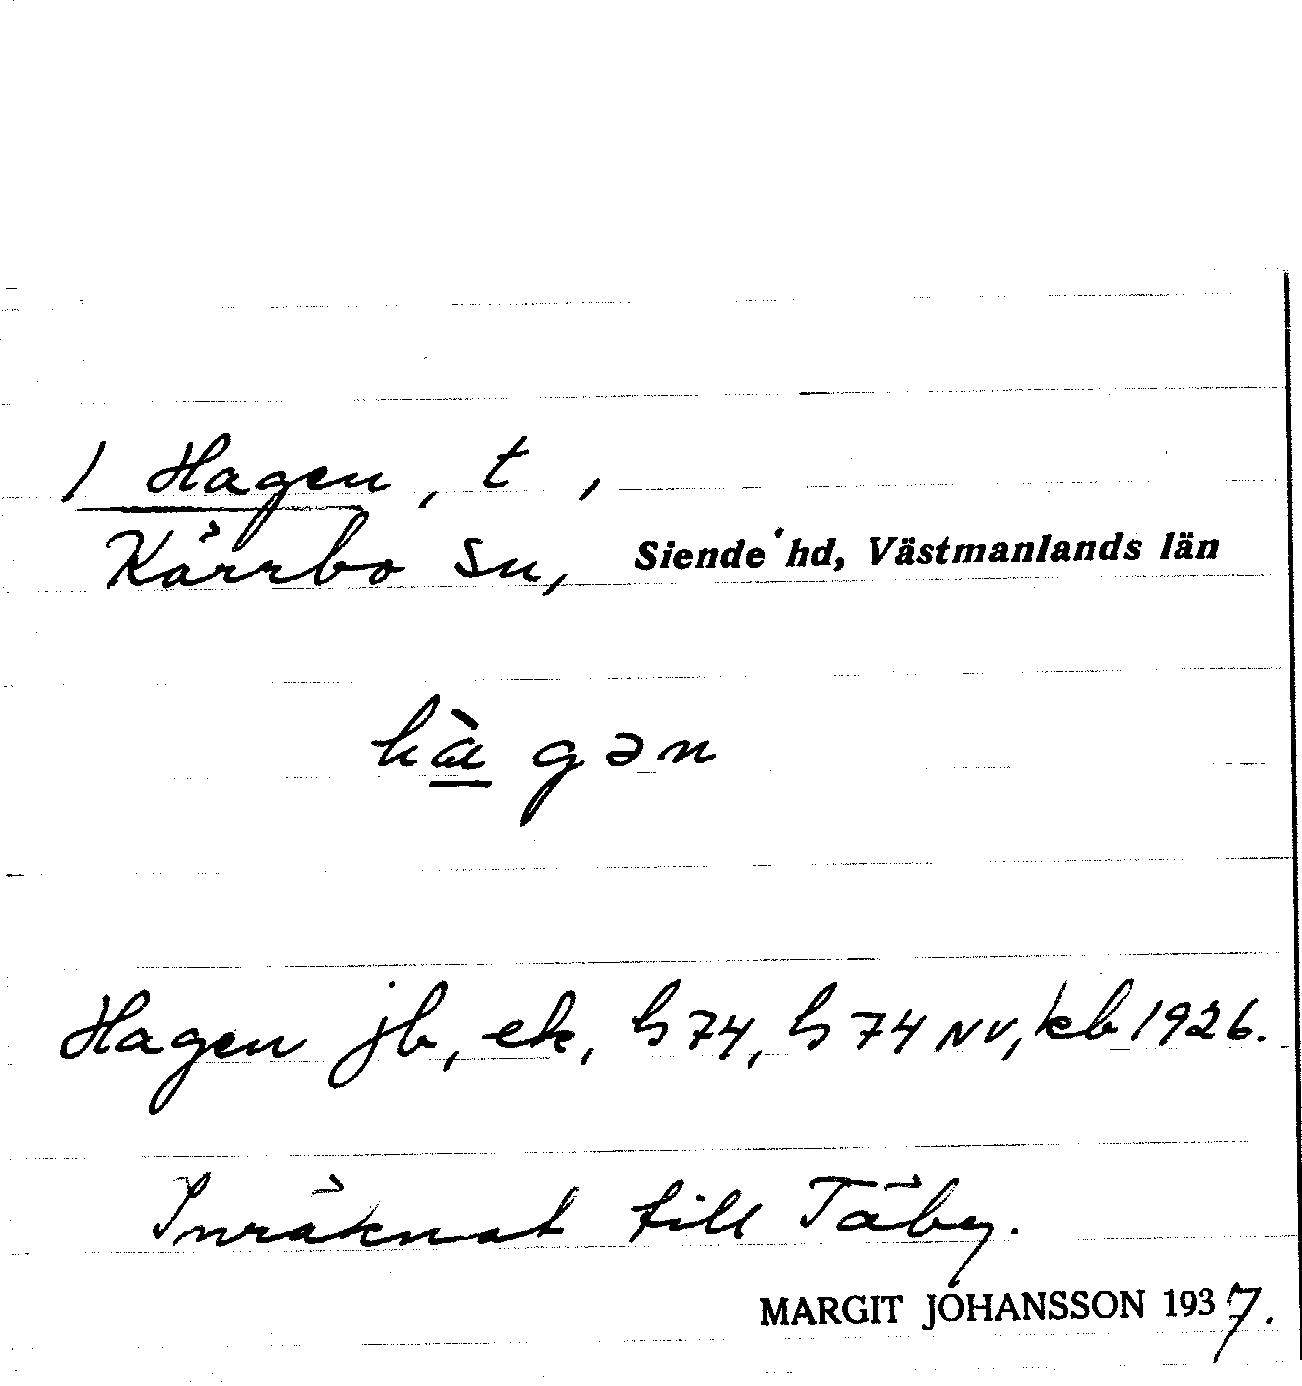 1 Hagen, t,
Kärrbo sn, Siende hd, Västmanlands län
hàgən
Hagen jb, ek, h 74, h 74 NV, kb 1926.
Inräknat till Täby.
MARGIT JOHANSSON 1937.